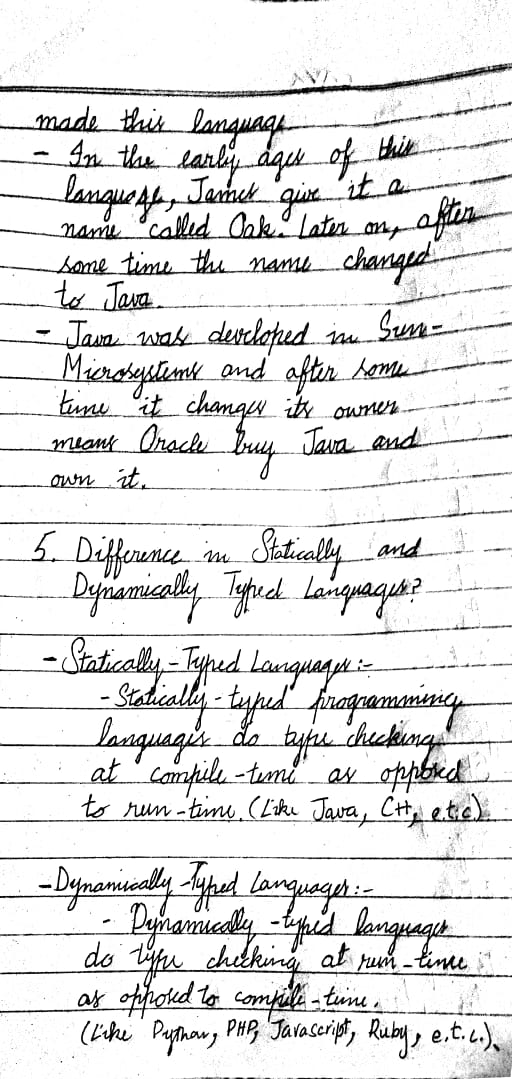 made this language
- In the early ages of this
language, James give it a
name called Oak. Later on, after
some time the name changed
to Java.
- Java was developed in Sun-
Microsystems and after some
time it changes its owner
means Oracle buy Java and
own it.
5. Difference in Statically and
Dynamically Typed Languages?
- Statically-Typed Languages:-
- Statically-typed programming
languages do type checking
at compile-time as opposed
to run-time. (Like Java, C++, e.t.c)
- Dynamically-Typed Languages:-
- Dynamically-typed languages
do type checking at run-time
as opposed to compile-time.
(Like Python, PHP, Javascript, Ruby, e.t.c.).